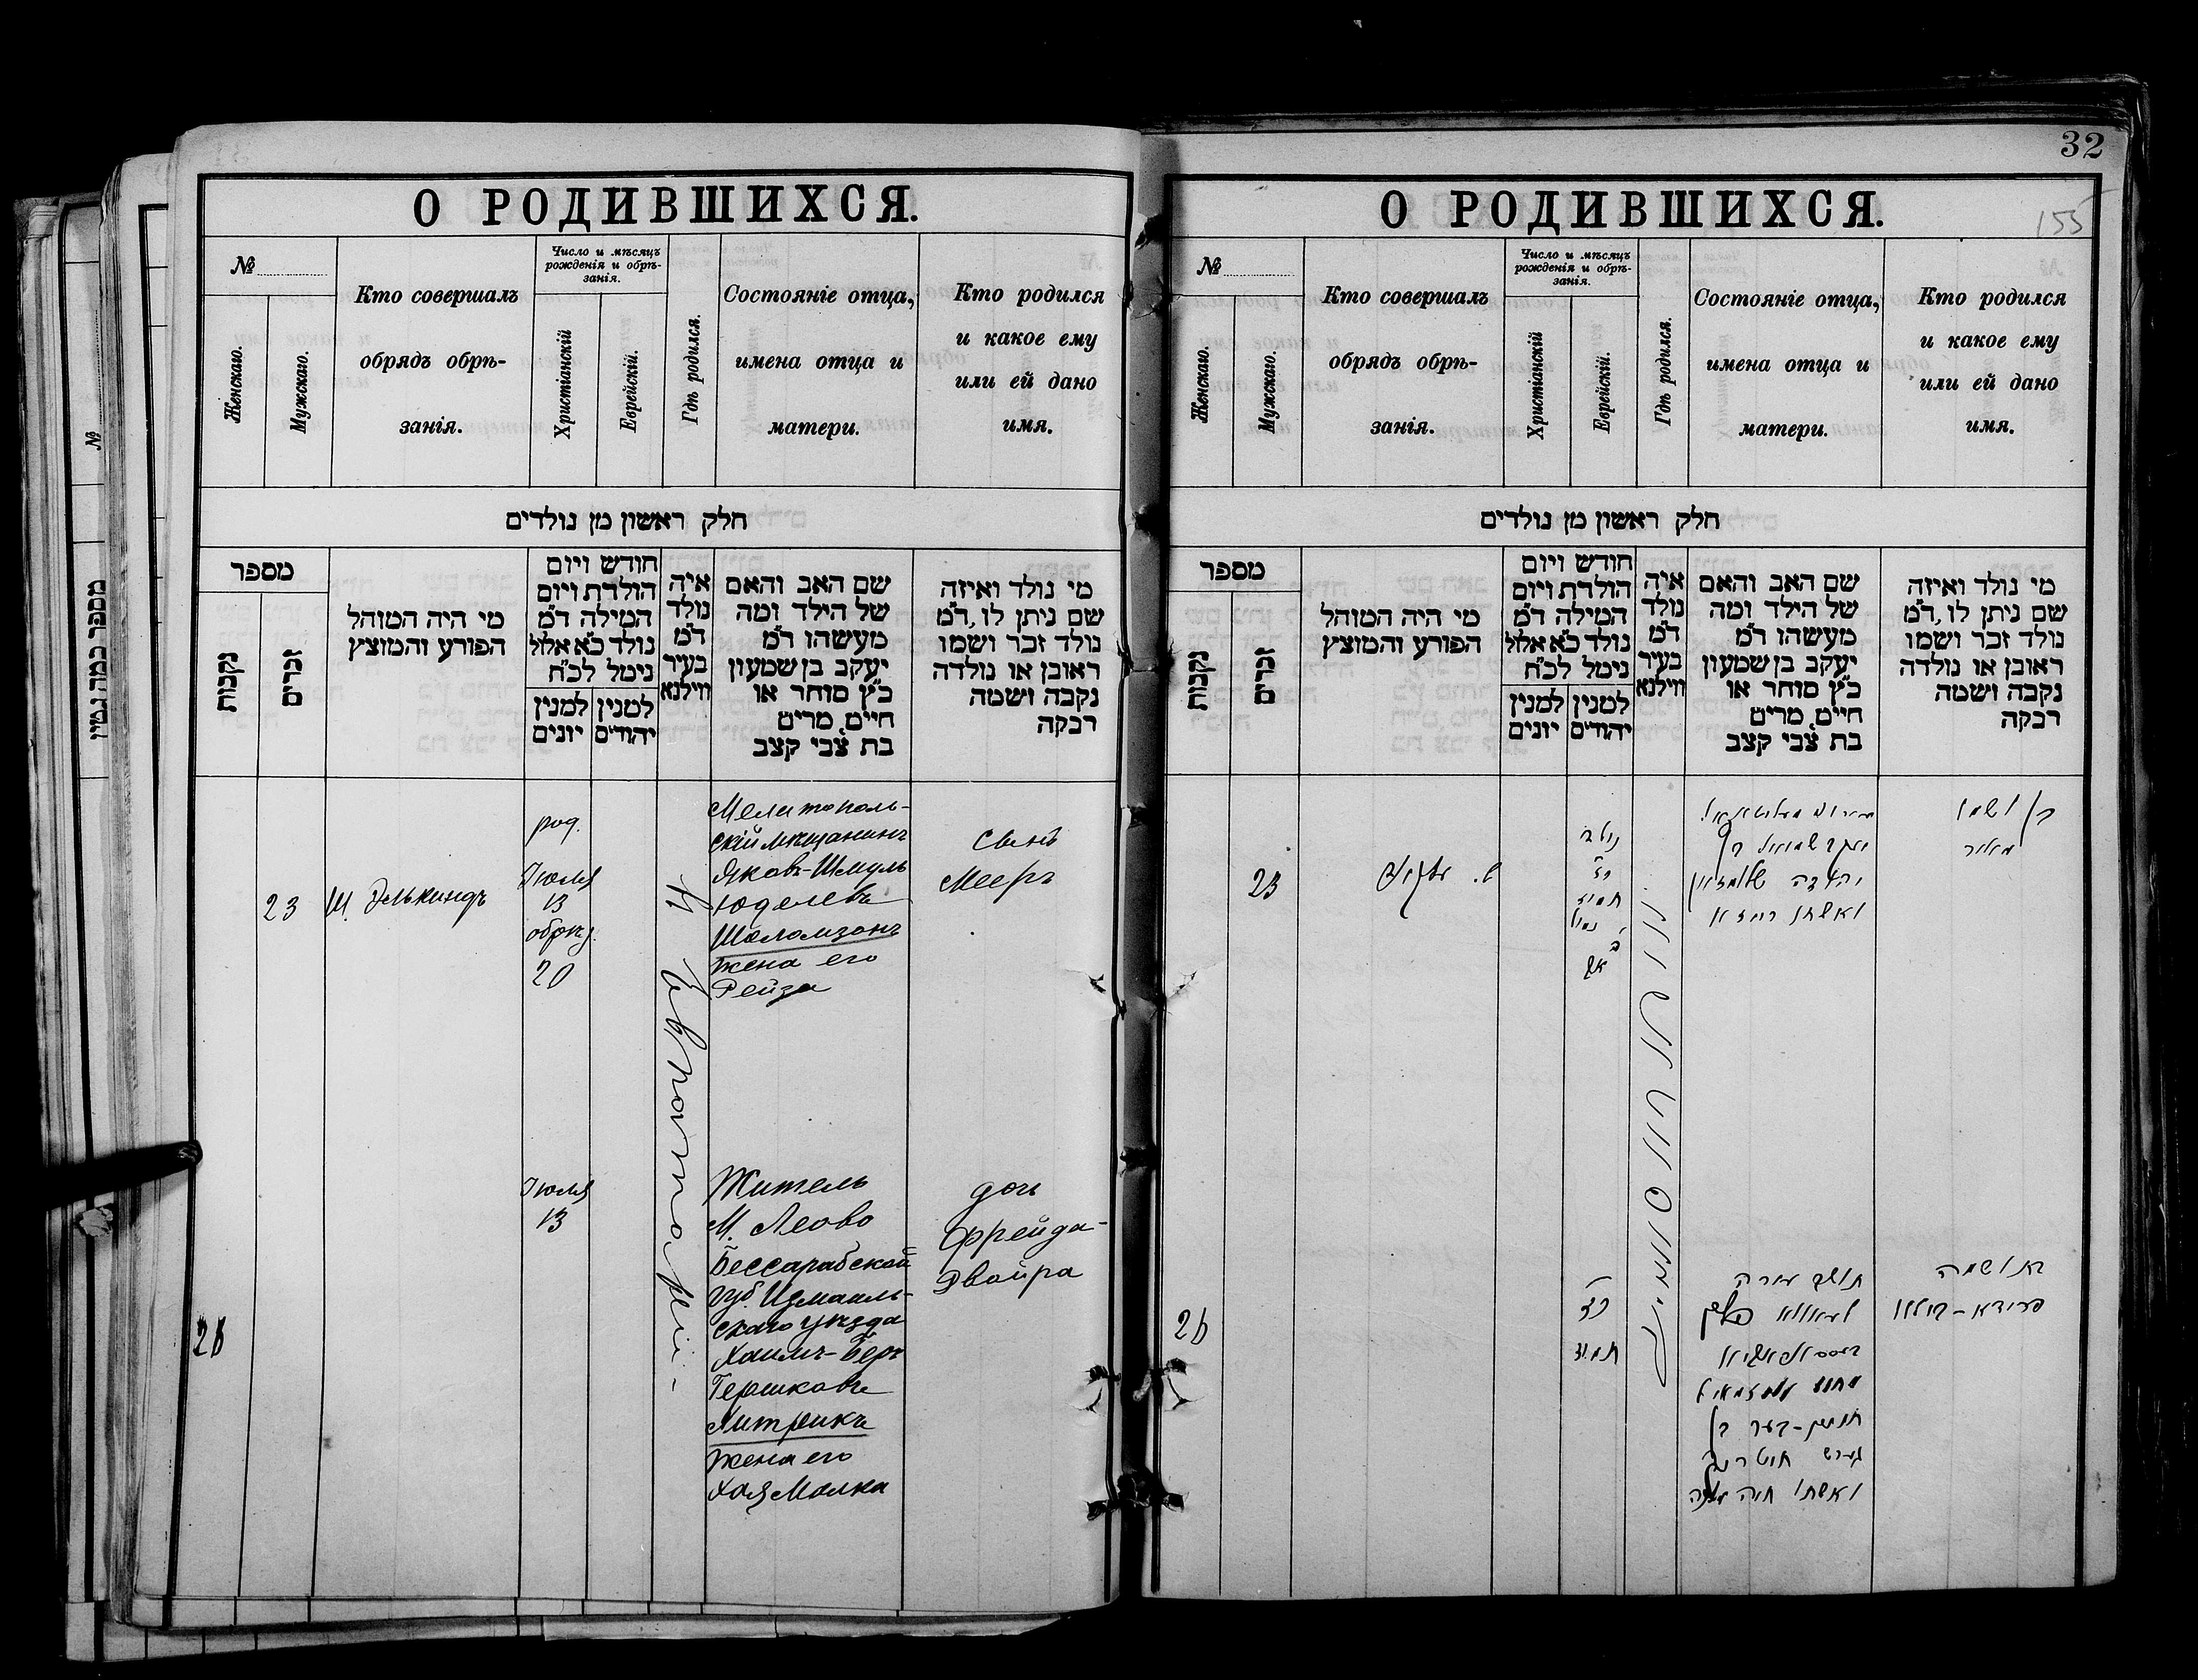 О РОДИВШИХСЯ.
№
Женскаго.
Мужскаго.
Кто совершалъ
обрядъ обрѣ-
занія.
Число и мѣсяцъ
рожденія и обрѣ-
занія.
Христіанскій
Еврейскій.
Гдѣ родился.
Состояніе отца,
имена отца и
матери.
Кто родился
и какое ему
или ей дано
имя.
חלק ראשון מן נולדים
מספר
נקבות
זכרים
מי היה המוהל
הפורע והמוצץ
חודש ויום
הולדת ויום
המילה ד״מ
נולד כ״א אלול
נימל לכ״ח
למנין
יונים
למנין
יהודים
איה
נולד
ד״מ
בעיר
ווילנא
שם האב והאם
של הילד ומה
מעשהו ד״מ
יעקב בן שמעון
כ״ץ סוחר או
חיים, מרים
בת צבי קצב
מי נולד ואיזה
שם ניתן לו, ד״מ
נולד זכר ושמו
ראובן או נולדה
נקבה ושמה
רבקה
23
Ш. Элькиндъ
род.
Іюля
13
обрѣз.
20
Мелитополь-
скій мѣщанинъ
Яковъ-Шмуль
Юделевъ
Шоломзонъ
жена его
Рейза
Сынъ
Мееръ
Въ Евпаторіи
26
Іюля
13
Житель
М. Леово
Бессарабской
губ. Измаиль-
скаго уѣзда
Хаимъ-Беръ
Гершковъ
Хитрикъ
жена его
Хая Малка
дочь
Фрейда-
Двойра
32
155
О РОДИВШИХСЯ.
№
Женскаго.
Мужскаго.
Кто совершалъ
обрядъ обрѣ-
занія.
Число и мѣсяцъ
рожденія и обрѣ-
занія.
Христіанскій
Еврейскій.
Гдѣ родился.
Состояніе отца,
имена отца и
матери.
Кто родился
и какое ему
или ей дано
имя.
חלק ראשון מן נולדים
מספר
נקבות
זכרים
מי היה המוהל
הפורע והמוצץ
חודש ויום
הולדת ויום
המילה ד״מ
נולד כ״א אלול
נימל לכ״ח
למנין
יונים
למנין
יהודים
איה
נולד
ד״מ
בעיר
ווילנא
שם האב והאם
של הילד ומה
מעשהו ד״מ
יעקב בן שמעון
כ״ץ סוחר או
חיים, מרים
בת צבי קצב
מי נולד ואיזה
שם ניתן לו, ד״מ
נולד זכר ושמו
ראובן או נולדה
נקבה ושמה
רבקה
23
ש. עלקינד
תמוז
נמול
אב
יעקב שמואל בן
יהודה שלומזאן
ואשתו רייזא
בן ושמו
מאיר
26
תמוז
תושב
חיים-בער בן
הערש חיטריק
ואשתו חיה מלכה
בת ושמה